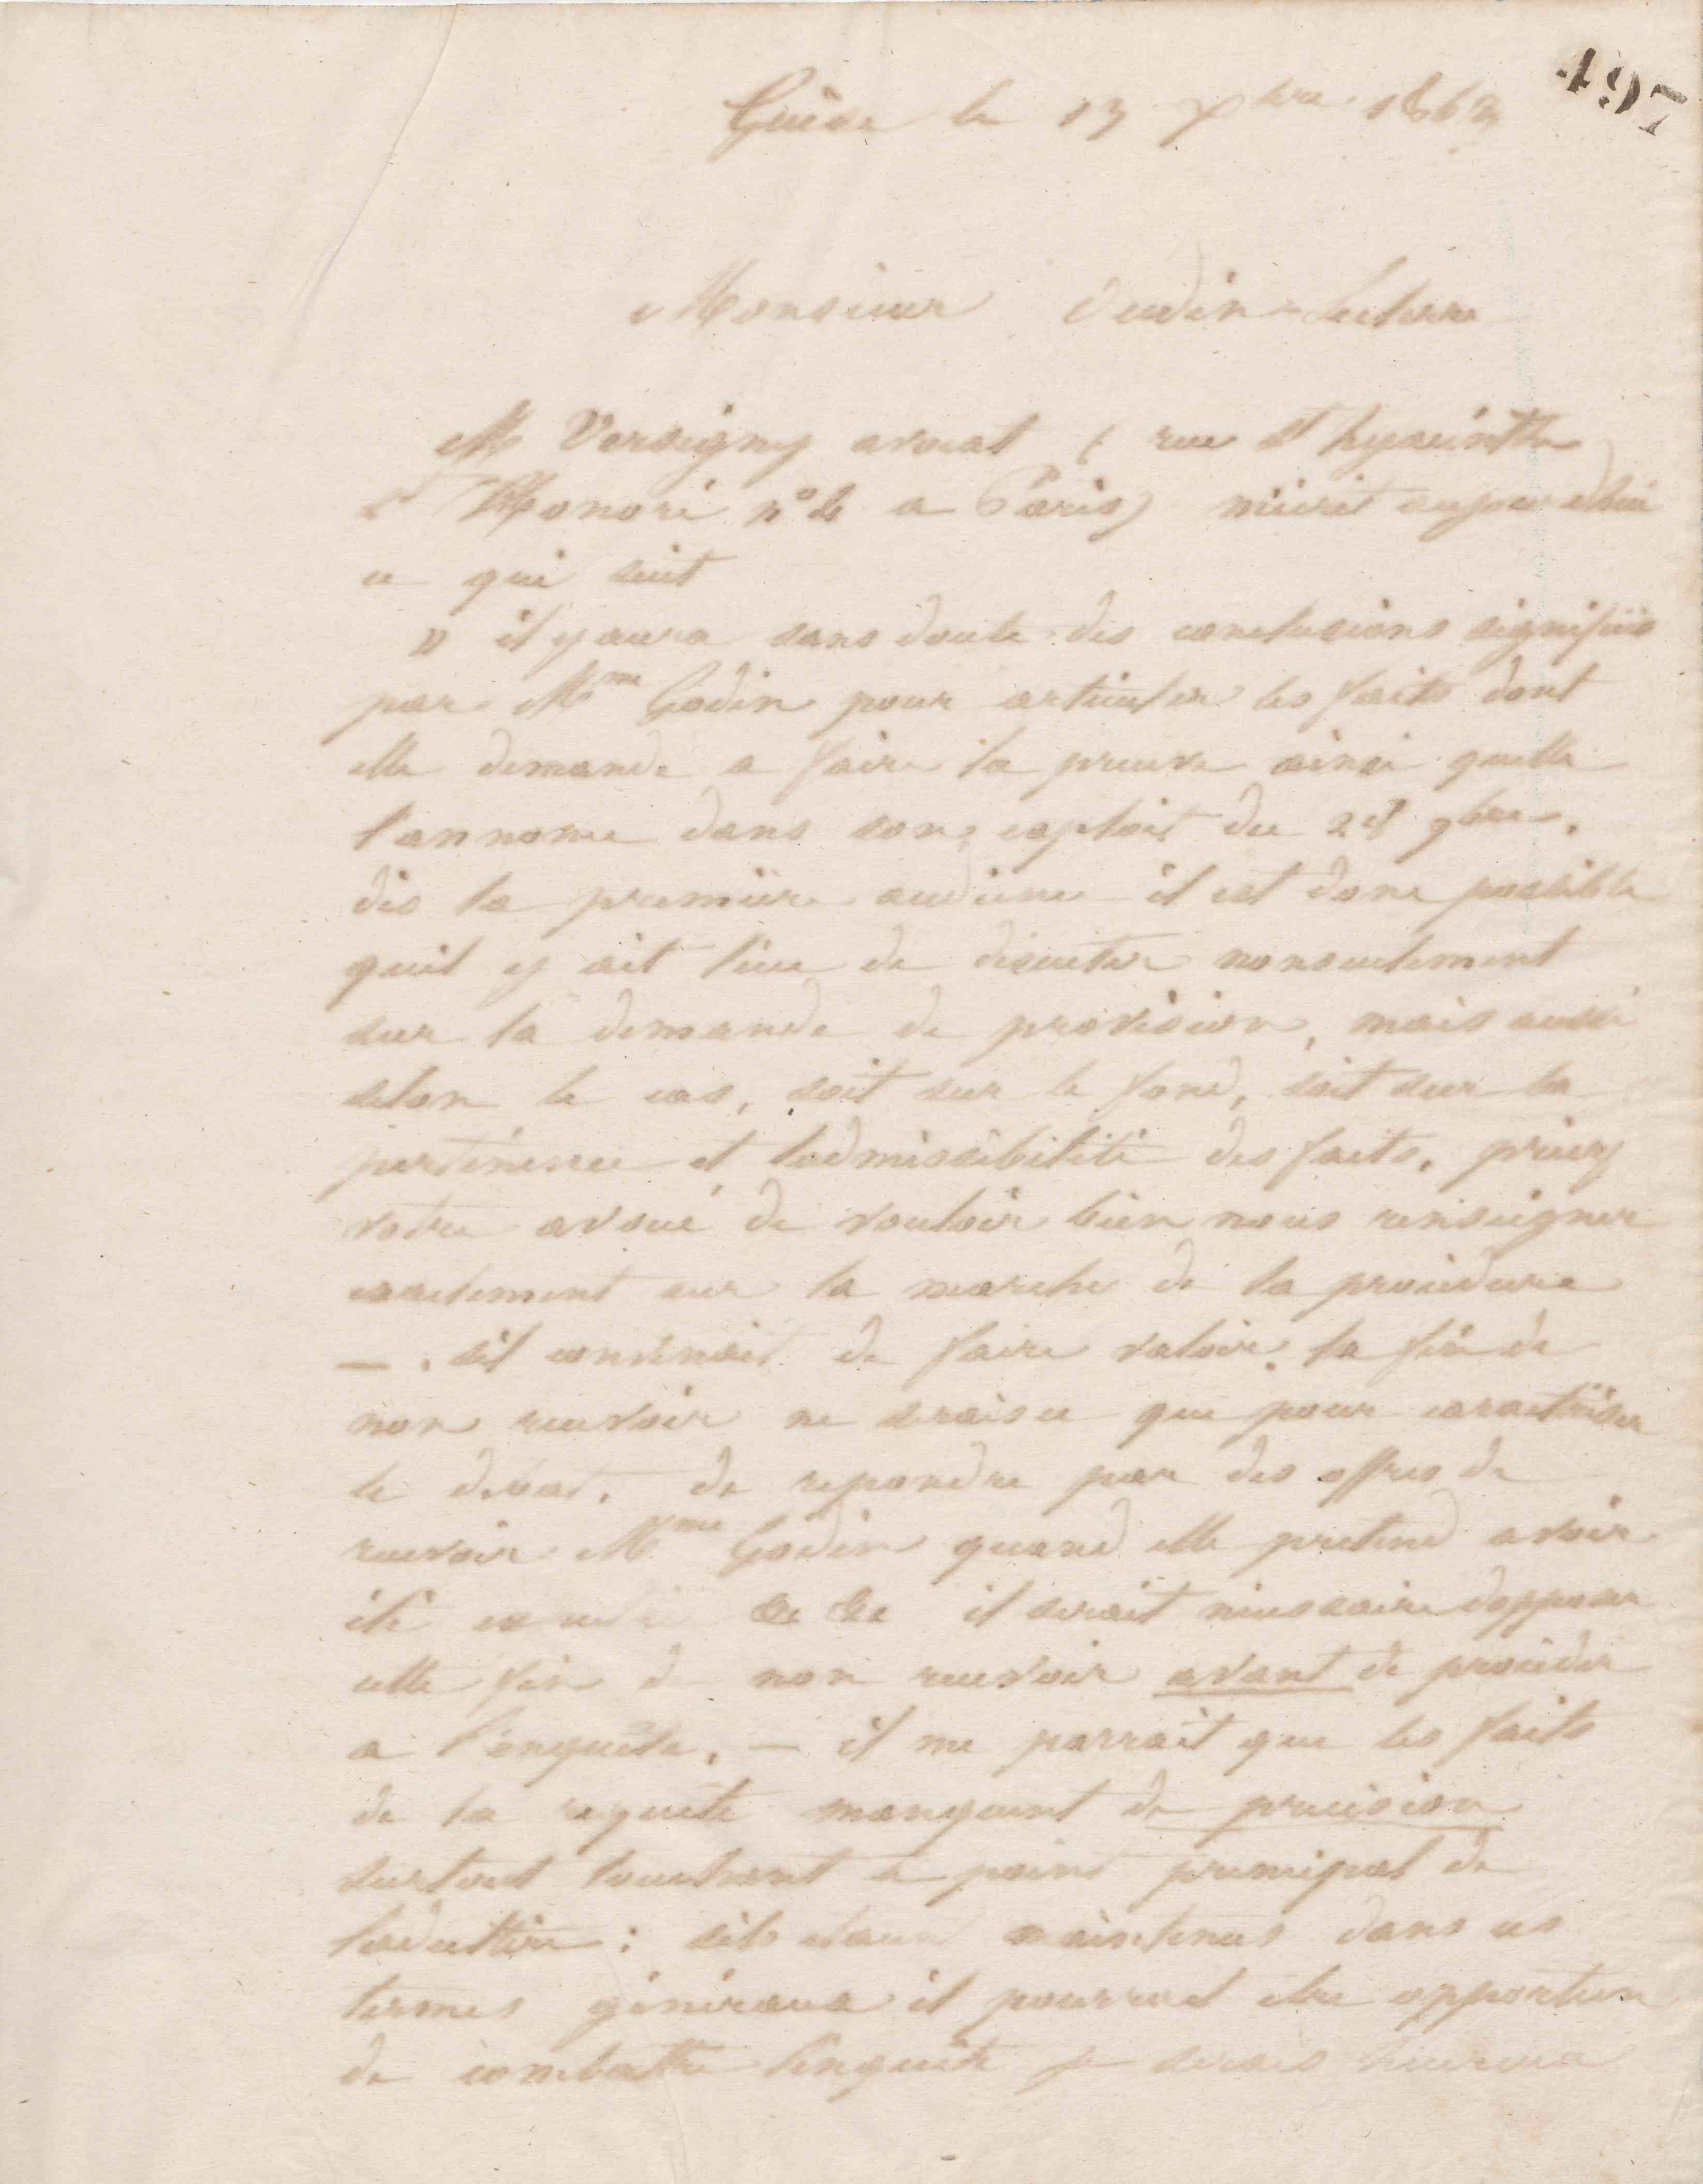 497
Guise le 13 Xbre 1863
Monsieur Oudin-Leclere
M Versigny avocat ( rue St hyacinthe
St Honoré n° 4 a Paris) m'écrit aujourdhui
ce qui suit
" il y aura sans doute des conclusions signifiés
par Mme Godin pour articuler les faits dont
elle demande a faire la preuve ainsi quelle
l'annonce dans son exploit du 28 9bre.
dès la première audience il est donc possible
quil y ait lieu de discuter nonseulement
sur la demande de provision, mais aussi
selon le cas, soit sur le fond, soit sur la
pertinence et ladmissibilité des faits. priez
votre avoué de vouloir bien nous renseigner
exactement sur la marche de la procédure
— . sil convenait de faire valoir la fin de
non recevoir ne serais ce que pour caractériser
le débat. de repondre par des offres de
recevoir Mme Godin quand elle pretend avoir
été il serait nécessaire d'opposer
cette fin de non recevoir avant de procéder
a l'enquête. — il me parrait que les faits
de la requête manquent de précision
surtout touchant le point principal de
ladultère : sils étaient maintenus dans ces
termes généraux il pourrait etre opportun
de combattre l'enquête je serais heureux